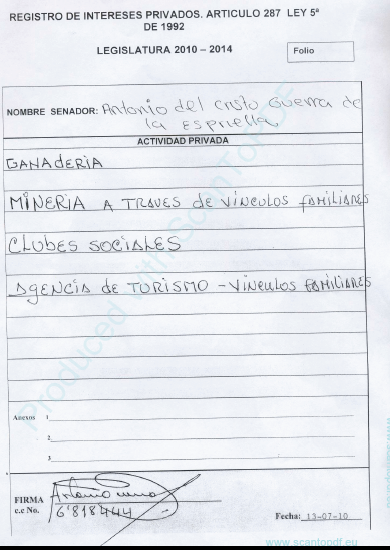 REGISTRO DE INTERESES PRIVADOS. ARTICULO 287 LEY 5ª
DE 1992
LEGISLATURA 2010 – 2014
Folio
NOMBRE SENADOR: Antonio del Cristo Guerra de
la Espriella
ACTIVIDAD PRIVADA
GANADERIA
MINERIA A TRAVES de VINCULOS FAMILIARES
CLUBES SOCIALES
AGENCIA de TURISMO - VINCULOS FAMILIARES
Produced with ScanToPDF
Anexos 1
2
3
FIRMA Antonio Guerra
c.c No. 6'818444
Fecha: 13-07-10
www.scantopdf.eu